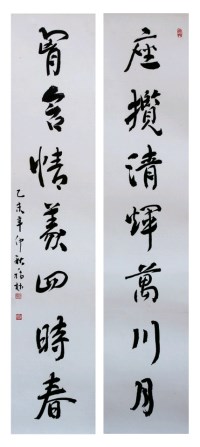 座攬清煇萬川月
胷含情義四時春
乙未年仲秋